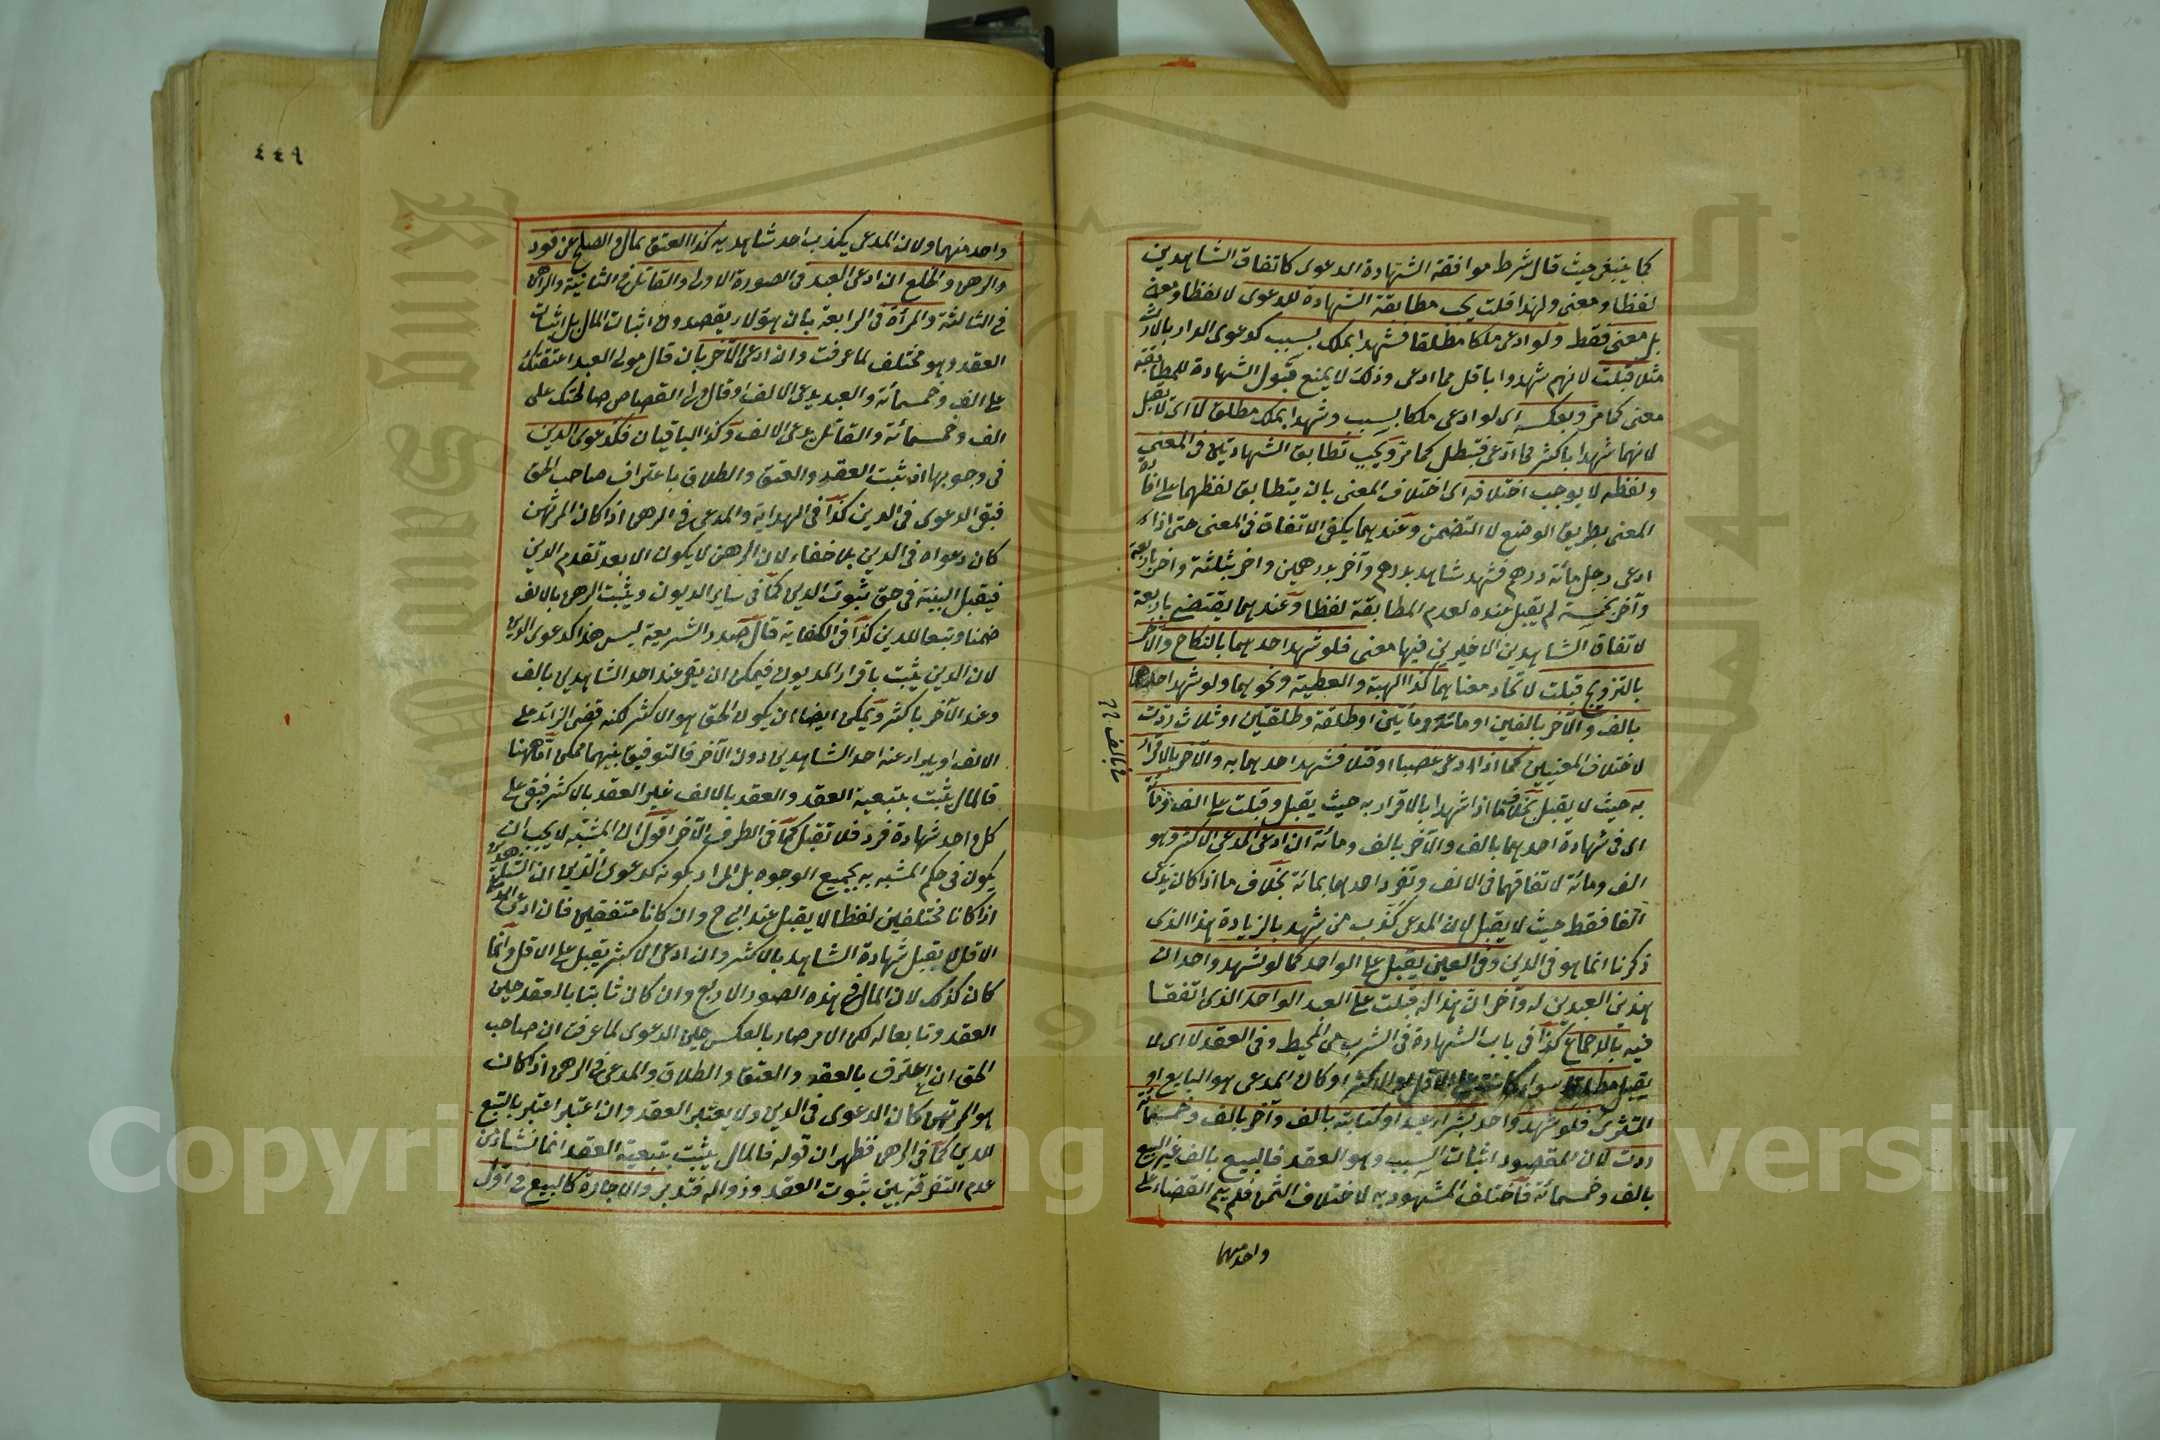 كما ينبغي حيث قال شرط موافقة الشهادة الدعوى كاتفاق الشاهدين
لفظا ومعنى ولهذا قلت يجب مطابقة الشهادة للدعوى لا لفظا ومعنى
بل معنى فقط ولو ادعى ملكا مطلقا فشهدا بملك بسبب كدعوى الدار بالارث
مثلا قبلت لانهم شهدوا باقل مما ادعى وذلك لا يمنع قبول الشهادة للمطابقة
معنى كما مر وبعكسه اى لو ادعى ملكا بسبب وشهدا بملك مطلق لا اى لا يقبل
لانهما شهدا باكثر مما ادعى فيبطل كما مر ويجب تطابق الشهادتين في المعنى
ولفظه لا يوجب اختلافه اى اختلاف المعنى بان يتطابق لفظهما على افادة
المعنى بطريق الوضع لا التضمن وعندهما يكفى الاتفاق في المعنى حتى اذا
ادعى رجل مائة درهم فشهد شاهد بدرهم وآخر بدرهمين واخر بثلثة واخر باربعة
وآخر بخمسة لم يقبل عنده لعدم المطابقة لفظا وعندهما يقتضى باربعة
لاتفاق الشاهدين الاخيرين فيها معنى فلو شهد احدهما بالنكاح والآخر
بالتزويج قبلت لاتحاد معناهما كذا الهبة والعطية ونحوهما ولو شهد احدهما
بالف والآخر بالفين او مائة ومائتين او طلقة وطلقتين او ثلاث ردت
لاختلاف المعنيين كما اذا ادعى غصبا او قتلا فشهد احدهما به والآخر بالاقرار
به حيث لا يقبل بخلاف ما اذا شهدا بالاقرار به حيث يقبل وقبلت على الف في
اى في شهادة احدهما بالف والآخر بالف ومائة ان ادعى المدعى الاكثر وهو
الف ومائة لاتفاقهما في الالف وتفرد احدهما بمائة بخلاف ما اذا كان يدعى
الفا فقط حيث لا يقبل لان المدعى كذب من شهد بالزيادة هذا الذى
ذكرنا انما هو في الدين وفي العين يقبل على الواحد كما لو شهد واحد ان
هذين العبدين له وآخر ان هذا له قبلت على العبد الواحد الذى اتفقا
فيه بالاجماع كذا في باب الشهادة في الشرب من المحيط وفي العقد لا اى لا
يقبل مطلقا سواء كانت على الاقل او الاكثر او كان المدعى هو البايع او
المشترى فلو شهد واحد بشراء عبد او كتابته بالف وآخر بالف وخمسمائة
ردت لان المقصود اثبات السبب وهو العقد فالبيع بالف غير البيع
بالف وخمسمائة فاختلف المشهود به لاختلاف الثمن فلم يتم القضاء على
واحد منهما
٤٤٩
واحد منهما ولان المدعى يكذب احد شاهديه كذا العتق بمال والصلح عن قود
والرهن والخلع ان ادعى العبد في الصورة الاولى والقاتل في الثانية والراهن
في الثالثة والمرأة في الرابعة بان هؤلاء يقصدون اثبات المال بل اثبات
العقد وهو مختلف لما عرفت وان ادعى الآخر بان قال مولى العبد اعتقتك
على الف وخمسمائة والعبد يدعى الالف او قال ولى القصاص صالحتك على
الف وخمسمائة والقاتل يدعى الالف وكذا الباقيان فكدعوى الدين
في وجوبها اذ ثبت العقد والعتق والطلاق باعتراف صاحب الحق
فبقى الدعوى في الدين كذا في الهداية والمدعى في الرهن اذا كان المرتهن
كان دعواه في الدين بلا خفاء لان الرهن لا يكون الا بعد تقدم الدين
فيقبل البينة في حق ثبوت الدين كما في ساير الديون ويثبت الرهن بالالف
ضمنا وتبعا للدين كذا في الكفاية قال صدر الشريعة ليس هذا كدعوى الدين
لان الدين يثبت باقرار المديون فيمكن ان يقر عند احد الشاهدين بالف
وعند الآخر باكثر ويمكن ايضا ان يكون الحق هو الاكثر لكنه قضى الزائد على
الالف او يبراء عنه احد الشاهدين دون الآخر فالتوفيق بينهما ممكن اما ههنا
فالمال يثبت بتبعية العقد والعقد بالالف غير العقد بالاكثر فبقى على
كل واحد شهادة فرد فلا تقبل كما في الطرف الآخر اقول ان المشبه لا يجب ان
يكون في حكم المشبه به بجميع الوجوه بل المراد بكونه كدعوى الدين ان الشاهدين
اذا كانا مختلفين لفظا لا يقبل عند ابى ح وان كانا متفقين فان ادعى المدعى
الاقل لا يقبل شهادة الشاهد بالاكثر وان ادعى الاكثر يقبل على الاقل وانما
كان كذلك لان المال في هذه الصور الاربع وان كان ثابتا بالعقد حين
العقد وتابعا له لكن الامر صار بالعكس حين الدعوى لما عرفت ان صاحب
الحق ان اعترف بالعقد والعتق والطلاق والمدعى في الرهن اذا كان
هو المرتهن كان الدعوى في الدين ولا يعتبر العقد وان اعتبر اعتبر بالتبع
للدين كما في الرهن فظهر ان قوله فالمال يثبت بتبعية العقد انما نشأ من
عدم التفرقة بين ثبوت العقد وزواله فتدبر والاجارة كالبيع في اول
Copyright © King Saud University